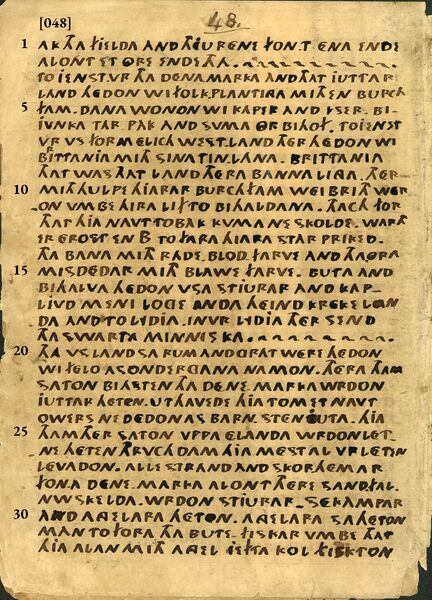 [048] 48.
1 AK THA FJELDA AND THJU RENE FON.T. ENA ENDE
ALONT ET ORE ENDE THA.
TO JENST.VR THA DENAMARKA AND THAT JUTTAR
LAND HEDON WI FOLK.PLANTINGA MITH EN BURCH
5 FAM. DANA WONON WI KAPER AND YSER. BI
JUNKA TAR PAK AND SUMA OR BIHOF. TO JENST
VR VS FORMELICH WESTLAND THER HEDON WI
BRITTANIA MITH SINA TINLANA. BRITTANIA
THAT WAS THAT LAND THERA BANNALIGA. THER
10 MITH HULPE HJARAR BURCHFAM WEI BRITH WER
ON VMBE HIRA LIF TO BIHALDANA. THACH FOR
THAT HJA NAVT TO BAK KUMA NE SKOLDE. WARTH
ER EROST EN B TO FARA HJARA STAR PRIKED.
THA BANA MITH RADE.BLOD.FARVE AND THA ORA
15 MISDEDAR MITH BLAWE FARVE. BUTA AND
BIHALVA HEDON VSA STJURAR AND KAP
LJUD MENI LODS ANDA HEIND KREKELAN
DA AND TO LYDIA. INVR LYDIA THER SEND
THA SWARTA MINNISKA.
20 THA VS LAND SA RUM AND GRAT WERE HEDON
WI FELO ASONDERGANA NAMON. THERA THAM
SATON BIASTEN THA DENE.MARKA WRDON
JUTTAR HETEN. UTHAVEDE HJA TOMET NAVT
OWERS NE DEDON AS BARN.STEN JUTA. HJA
25 THAM THER SATON VPPA ELANDA WRDON LET
NE HETEN THRVCHDAM HJA MESTAL VRLETEN
LEVADON. ALLE STRAND AND SKORHEMAR
FONA DENE.MARKA ALONT THERE SANDFAL.
NW SKELDA. WRDON STJURAR. SEKAMPAR
30 AND ANGELARA HETON. ANGELARA SA HETON
MAN TO FORA THA BUTE.FISKAR VMBE THAT
HJA ALAN MITH ANGEL JEFTA KOL FISKTON